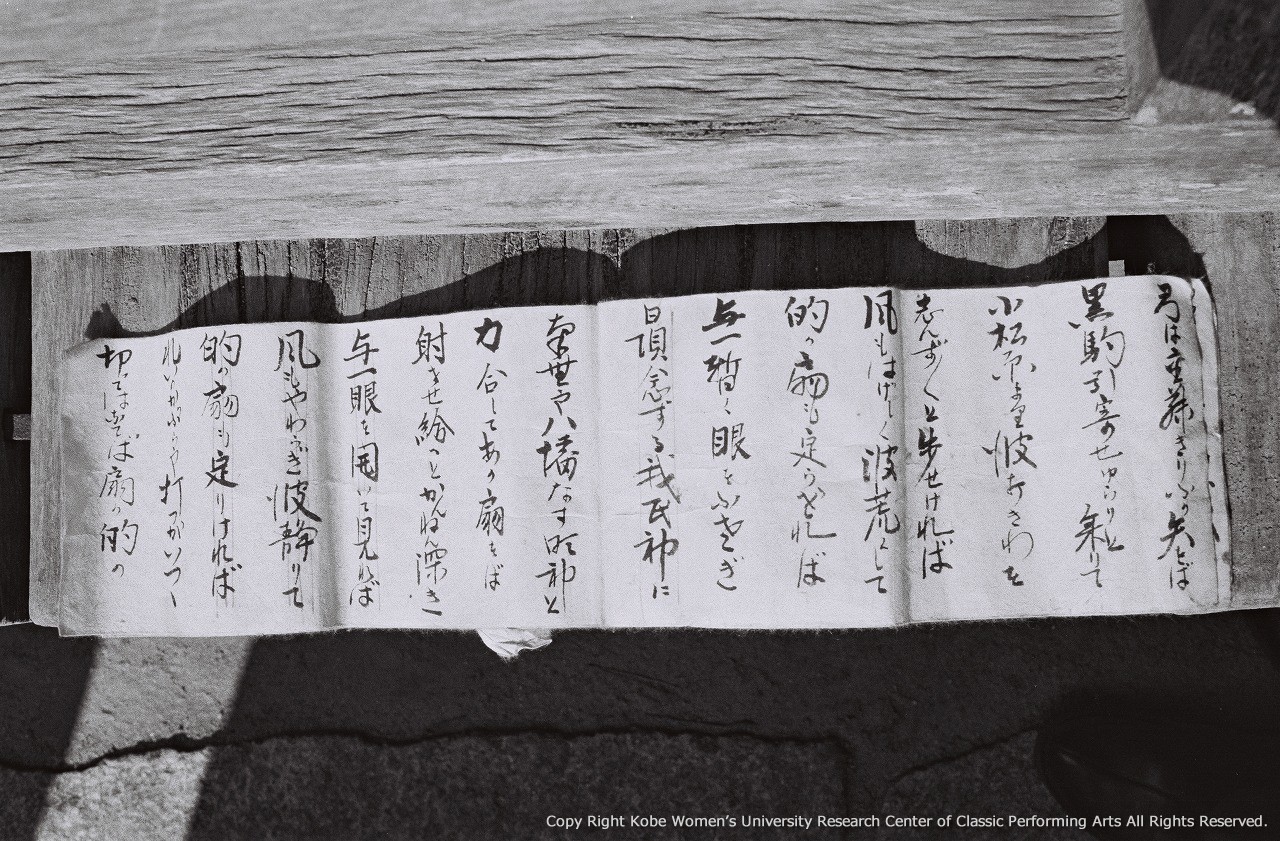 弓は重藤きりふの矢をば
黒駒引寄せゆらりと乗りて
小松原より波打きわを
志んずしずと歩せければ
風もはげしく波荒くして
的の扇も定らざれば
与一暫く眼をふさぎ
唄念する我氏神に
南無や八幡大明神と
力合してあの扇をば
射させ給へとかんねん深き
与一眼を開いて見れば
風もやわらぎ波静りて
的の扇も定りければ
れいのかぶらや打つがいつゝ
切ては放せば扇の的の
Copy Right Kobe Women's University Research Center of Classic Performing Arts All Rights Reserved.